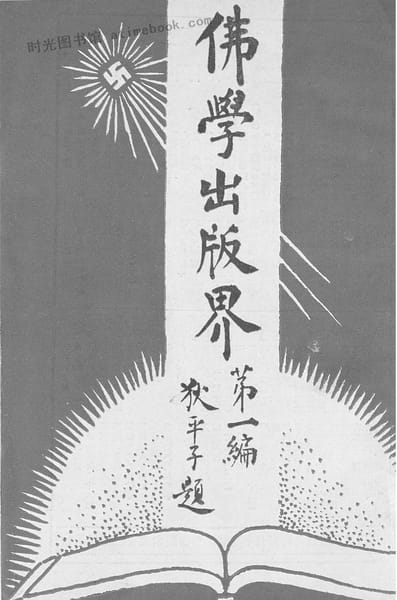 时光图书馆 atimebook.com
佛學出版界
第一編
狄平子題